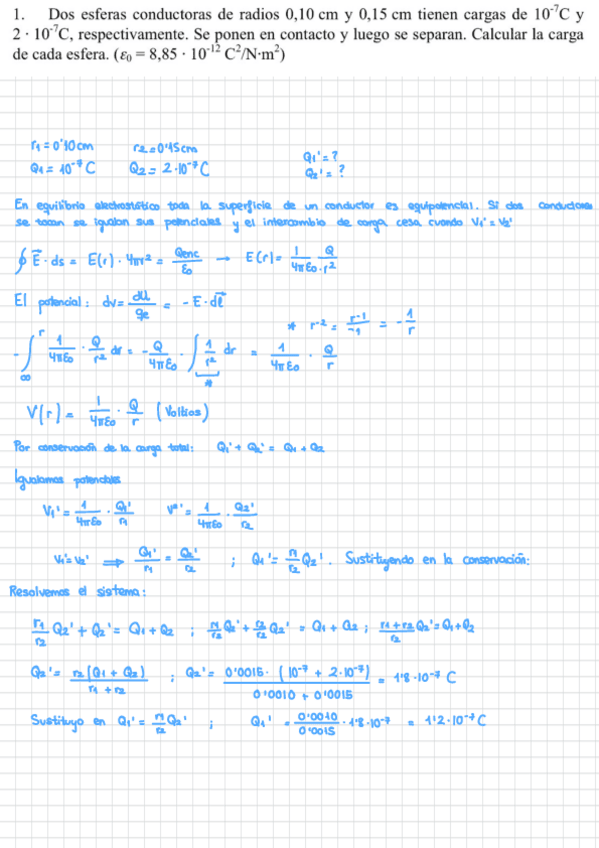 1. Dos esferas conductoras de radios 0,10 cm y 0,15 cm tienen cargas de 10⁻⁷C y
2 · 10⁻⁷C, respectivamente. Se ponen en contacto y luego se separan. Calcular la carga
de cada esfera. (ε₀ = 8,85 · 10⁻¹² C²/N·m²)
r₁ = 0'10cm r₂ = 0'15cm Q₁' = ?
Q₁ = 10⁻⁷ C Q₂ = 2·10⁻⁷ C Q₂' = ?
En equilibrio electrostático toda la superficie de un conductor es equipotencial. Si dos conductores
se tocan se igualan sus potenciales y el intercambio de carga cesa cuando V₁' = V₂'
∮ E⃗ · ds = E(r) · 4πr² = Qenc/ε₀ → E(r) = 1/4πε₀ Q/r²
El potencial: dv = dU/qe = -E · dl⃗
* r⁻² = r⁻¹/-1 = -1/r
-∫∞^r 1/4πε₀ · Q/r² dr = -Q/4πε₀ · ∫ 1/r² dr = 1/4πε₀ · Q/r
*
V(r) = 1/4πε₀ · Q/r (Voltios)
Por conservación de la carga total: Q₁' + Q₂' = Q₁ + Q₂
Igualamos potenciales
V₁' = 1/4πε₀ · Q₁'/r₁ V²' = 1/4πε₀ · Q₂'/r₂
V₁' = V₂' ⟹ Q₁'/r₁ = Q₂'/r₂ ; Q₁' = r₁/r₂ Q₂'. Sustituyendo en la conservación:
Resolvemos el sistema:
r₁/r₂ Q₂' + Q₂' = Q₁ + Q₂ ; r₁/r₂ Q₂' + r₂/r₂ Q₂' = Q₁ + Q₂ ; r₁+r₂/r₂ Q₂' = Q₁+Q₂
Q₂' = r₂(Q₁ + Q₂)/r₁ + r₂ ; Q₂' = 0'0015 · (10⁻⁷ + 2·10⁻⁷)/0'0010 + 0'0015 = 1'8·10⁻⁷ C
Sustituyo en Q₁' = r₁/r₂ Q₂' ; Q₁' = 0'0010/0'0015 · 1'8·10⁻⁷ = 1'2·10⁻⁷ C